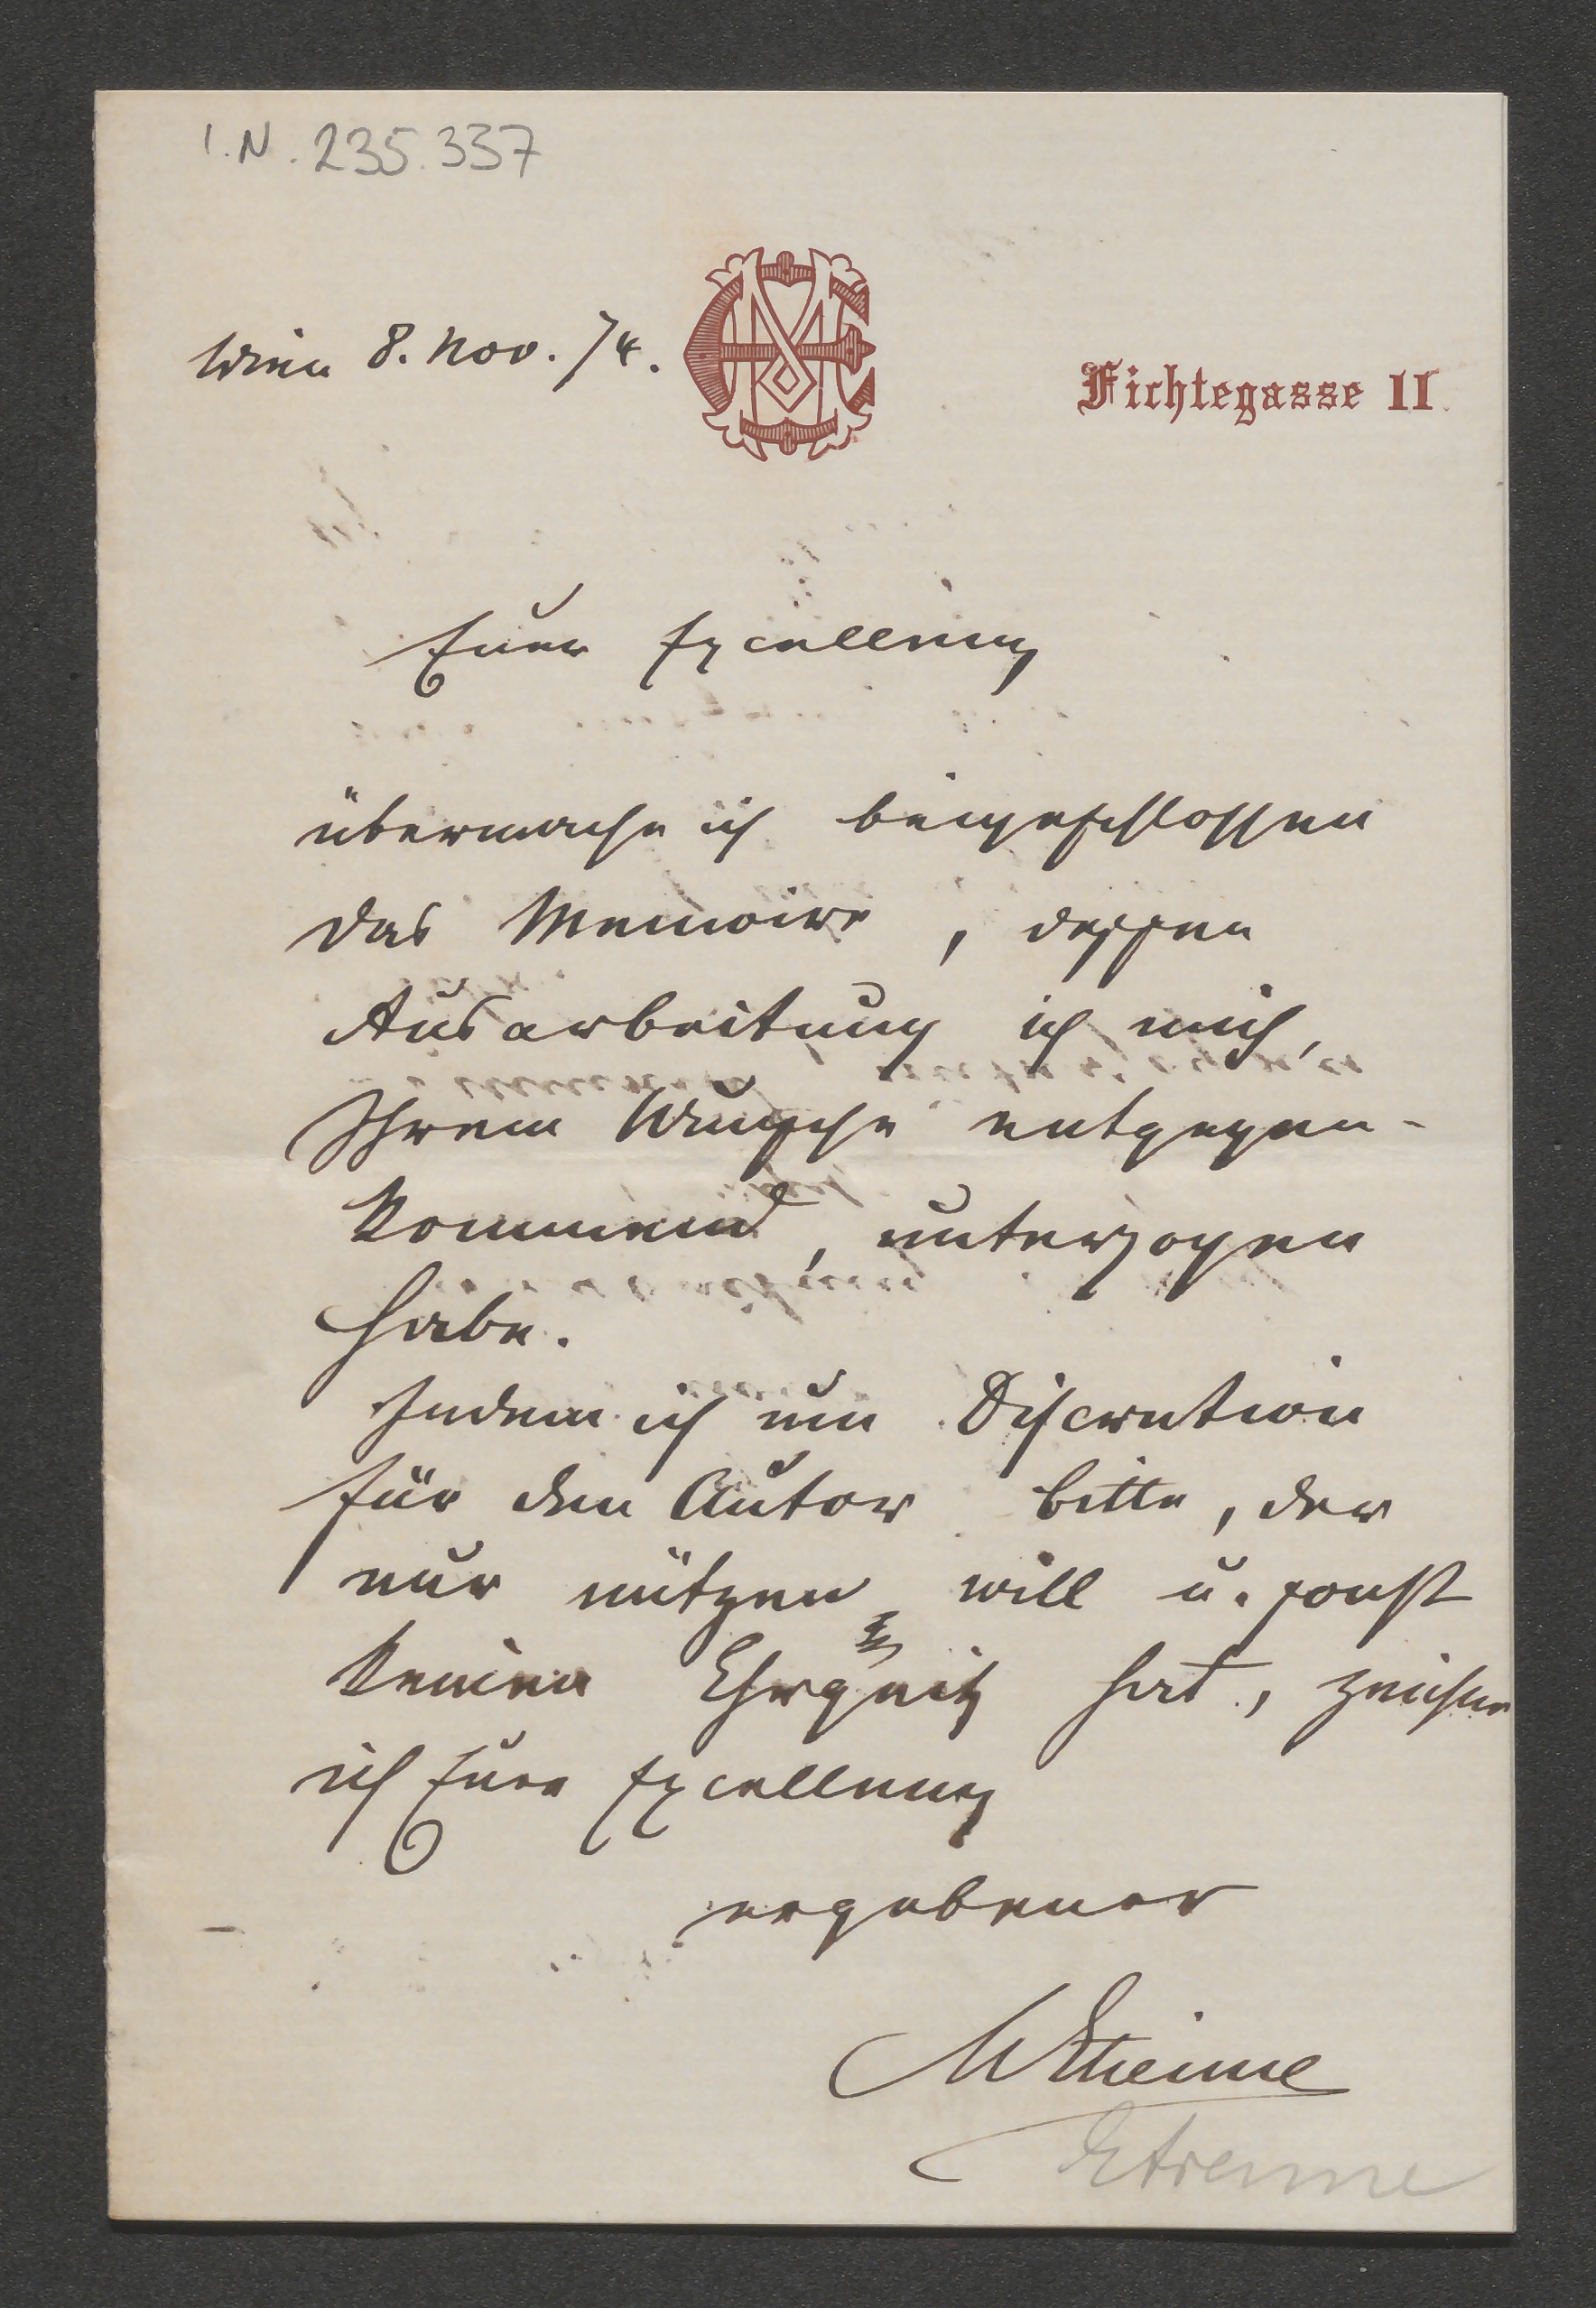 I.N. 235.337
Wien 8. Nov. 74.
Fichtegasse 11.
Euer Excellenz
übermache ich beigeschlossen
das Memoire, dessen
Ausarbeitung ich mich,
Ihrem Wunsche entgegen-
kommend, unterzogen
habe.
Indem ich um Discretion
für den Autor bitte, der
nur nützen will u. sonst
keinen Ehrgeitz hat, zeichne
ich Eure Excellenz
ergebener
MEtienne
Etienne